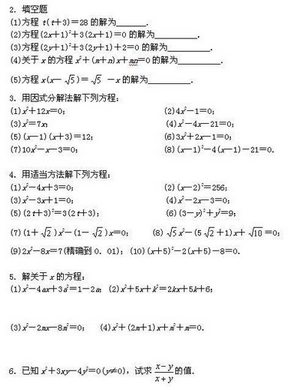 2．填空题
(1)方程 t(t+3)=28 的解为_______．
(2)方程(2x+1)²+3(2x+1)=0 的解为__________．
(3)方程(2y+1)²+3(2y+1)+2=0 的解为__________．
(4)关于 x 的方程 x²+(m+n)x+mn=0 的解为__________．
(5)方程 x(x-√5)=√5-x 的解为__________．
3．用因式分解法解下列方程：
(1)x²+12x=0； (2)4x²-1=0；
(3)x²=7x； (4)x²-4x-21=0；
(5)(x-1)(x+3)=12； (6)3x²+2x-1=0；
(7)10x²-x-3=0； (8)(x-1)²-4(x-1)-21=0．
4．用适当方法解下列方程：
(1)x²-4x+3=0； (2)(x-2)²=256；
(3)x²-3x+1=0； (4)x²-2x-3=0；
(5)(2t+3)²=3(2t+3)； (6)(3-y)²+y²=9；
(7)(1+√2)x²-(1-√2)x=0； (8)√5x²-(5√2+1)x+√10=0；
(9)2x²-8x=7(精确到 0．01)；(10)(x+5)²-2(x+5)-8=0．
5．解关于 x 的方程：
(1)x²-4ax+3a²=1-2a； (2)x²+5x+k²=2kx+5k+6；
(3)x²-2mx-8m²=0； (4)x²+(2m+1)x+m²+m=0．
6．已知 x²+3xy-4y²=0(y≠0)，试求 (x-y)/(x+y) 的值．